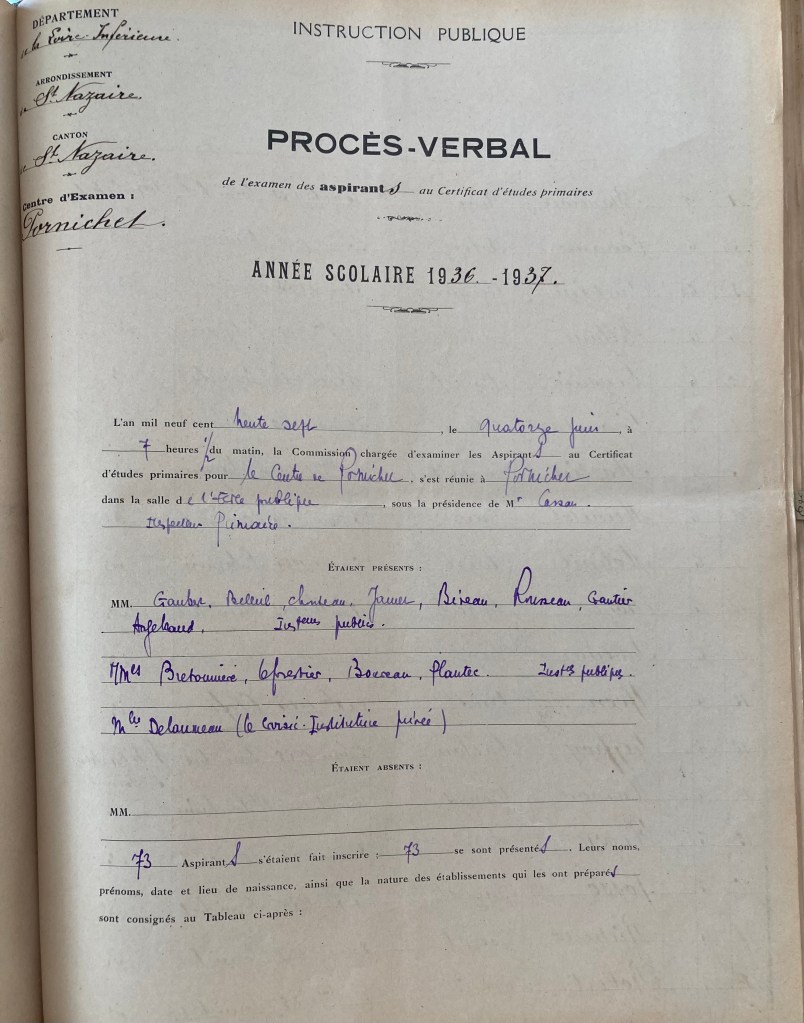 DÉPARTEMENT
de la Loire-Inférieure.
ARRONDISSEMENT
de St Nazaire.
CANTON
de St Nazaire.
Centre d'Examen :
Pornichet.
INSTRUCTION PUBLIQUE
PROCÈS-VERBAL
de l'examen des aspirants au Certificat d'études primaires
ANNÉE SCOLAIRE 1936.-1937.
L'an mil neuf cent trente sept, le quatorze juin, à
7 heures 1/2 du matin, la Commission chargée d'examiner les Aspirants au Certificat
d'études primaires pour le Centre de Pornichet, s'est réunie à Pornichet
dans la salle de l'Ecole publique, sous la présidence de Mr
Inspecteur Primaire.
ÉTAIENT PRÉSENTS :
MM. Gaubert, Belleil, Janier, Bireau, Rousseau, Gautier
Angebaud, Insteurs publics.
Mmes Bretonnière, Leforestier, Bouceau, Plantec. Instes publiques.
Mlle Delauneau (Le Croisic-Institutrice privée)
ÉTAIENT ABSENTS :
MM.
73 Aspirants s'étaient fait inscrire : 73 se sont présentés. Leurs noms,
prénoms, date et lieu de naissance, ainsi que la nature des établissements qui les ont préparés
sont consignés au Tableau ci-après :